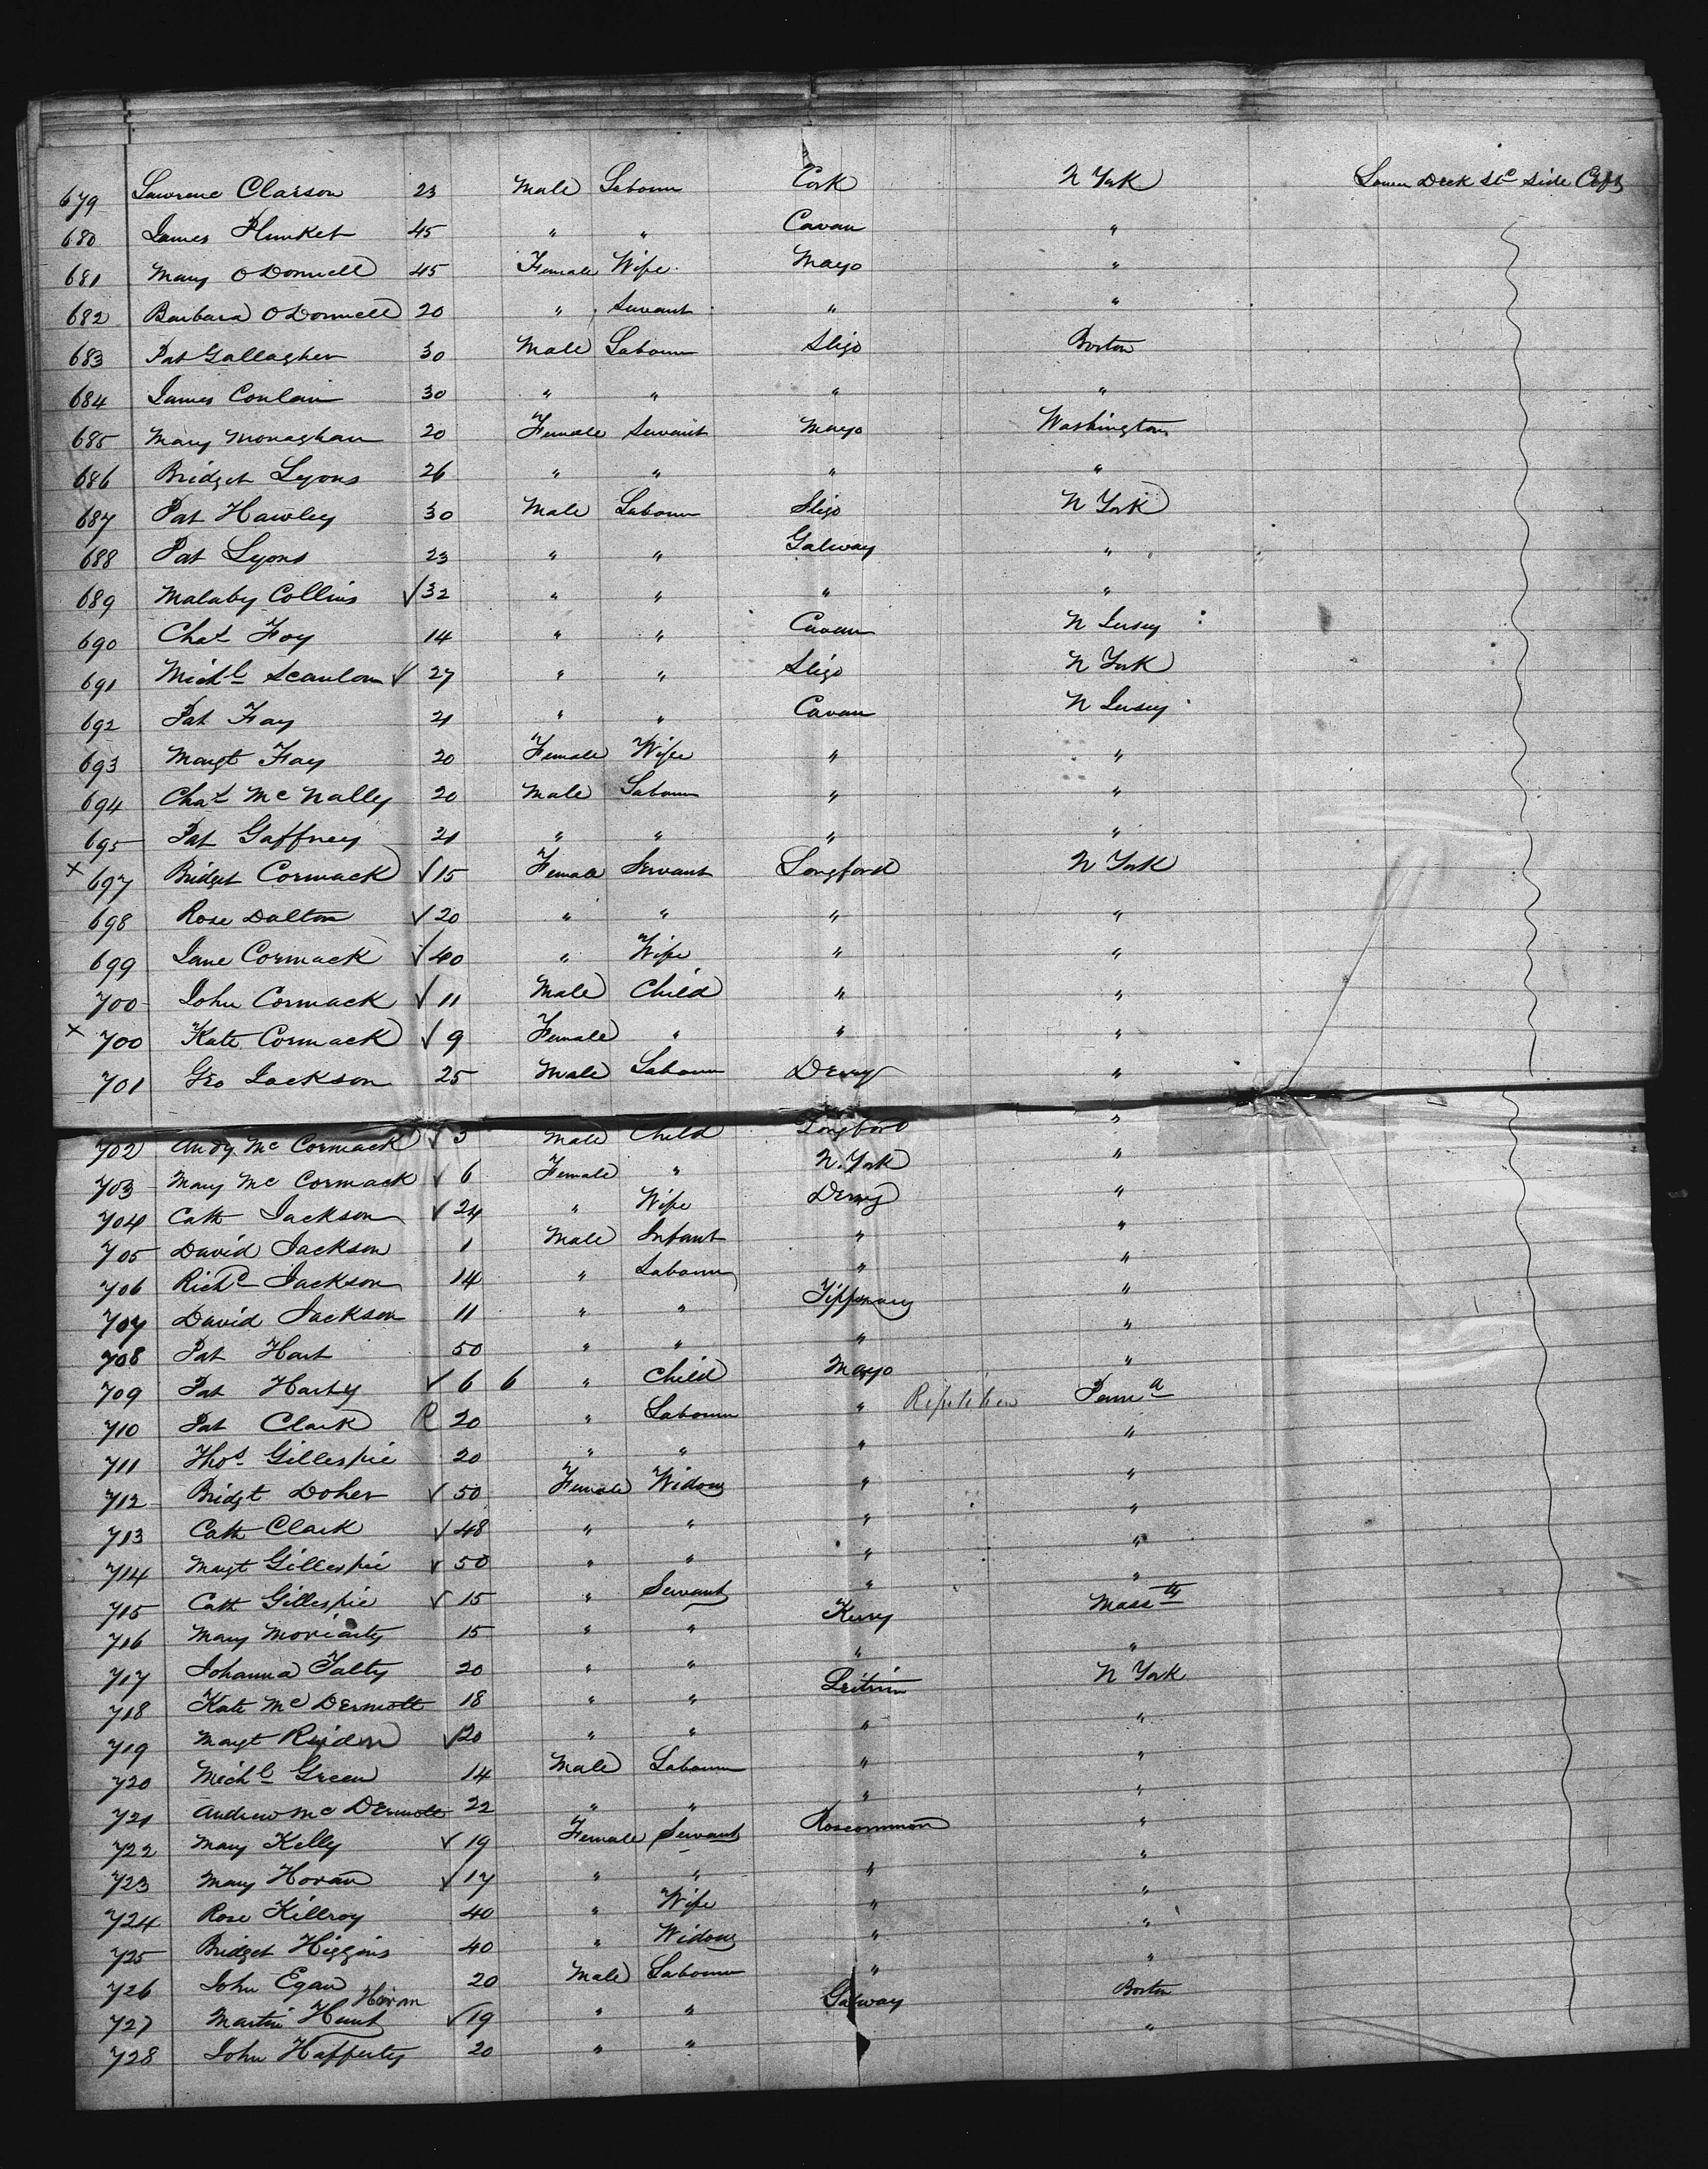 679 Lawrence Clarson 23 Male Labourer Cork N York Lower Deck Stb Side
680 James Plunket 45 " " Cavan "
681 Mary O Donnell 45 Female Wife Mayo "
682 Barbara O Donnell 20 " Servant " "
683 Pat Gallagher 30 Male Labourer Sligo Boston
684 James Conlan 30 " " " "
685 Mary Monaghan 20 Female Servant Mayo Washington
686 Bridget Lyons 26 " " " "
687 Pat Hawley 30 Male Labourer Sligo N York
688 Pat Lyons 23 " " Galway "
689 Malaby Collins √ 32 " " " "
690 Chas Foy 14 " " Cavan N Jersey
691 Michl Scanlon √ 27 " " Sligo N York
692 Pat Fay 21 " " Cavan N Jersey
693 Margt Fay 20 Female Wife " "
694 Chas Mc Nally 20 Male Labourer " "
695 Pat Gaffney 21 " " " "
x 697 Bridget Cormack √ 15 Female Servant Longford N York
698 Rose Dalton √ 20 " " " "
699 Jane Cormack √ 40 " Wife " "
700 John Cormack √ 11 Male Child " "
x 700 Kate Cormack √ 9 Female " " "
701 Geo Jackson 25 Male Labourer Derry "
702 Andy Mc Cormack √ 3 Male Child Longford "
703 Mary Mc Cormack √ 6 Female " N. York "
704 Cath Jackson √ 24 " Wife Derry "
705 David Jackson 1 Male Infant " "
706 Richd Jackson 14 " Labourer " "
707 David Jackson 11 " " Tipperary "
708 Pat Hart 50 " " " "
709 Pat Harty √ 6 6 " Child Mayo "
710 Pat Clark R 20 " Labourer " Repetition Penna
711 Thos Gillespie 20 " " " "
712 Bridgt Doher √ 50 Female Widow " "
713 Cath Clark √ 48 " " " "
714 Margt Gillespie √ 50 " " " "
715 Cath Gillespie √ 15 " Servant " "
716 Mary Moriarty 15 " " Kerry Massts
717 Johanna Falty 20 " " " "
718 Kate Mc Dermott 18 " " Leitrim N York
719 Margt √ 20 " " " "
720 Michl Green 14 Male Labourer " "
721 Andrew Mc Dermott 22 " " " "
722 Mary Kelly √ 19 Female Servant Roscommon "
723 Mary Horan √ 17 " " " "
724 Rose Killroy 40 " Wife " "
725 Bridget Higgins 40 " Widow " "
726 John Egan 20 Male Labourer " "
Horan
727 Martin Hunt √ 19 " " Galway Boston
728 John Hafferty 20 " " "